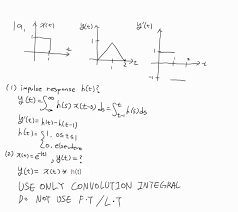 1a. x(t) y(t) y'(t)
1 1 1
1 t 1 2 t 1 2 t
-1
(1) impulse response h(t)?
y(t)=∫_{-∞}^{∞} h(s) x(t-s) ds = ∫_{t-1}^{t} h(s)ds
y'(t)=h(t)-h(t-1)
h(t)={1, 0≤t≤1
0, elsewhere
(2) x(t)=e^{-|t|}, y(t)=?
y(t)= x(t) * h(t)
USE ONLY CONVOLUTION INTEGRAL
DO NOT USE F.T / L.T